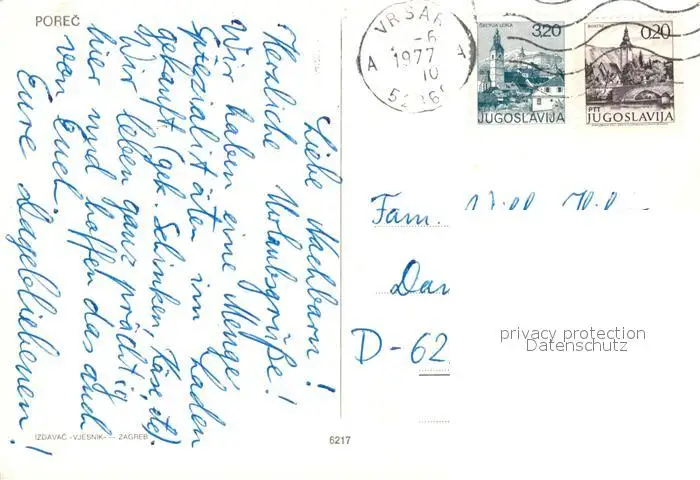 POREČ
Liebe Nachbarn!
Herzliche Urlaubsgrüße!
Wir haben eine Menge
Spezialitäten im Laden
gekauft (gek. Schinken, Käse, etc)
Wir leben ganz prächtig
hier und hoffen das auch
von Euch.
Eure Dageblichenen!
IZDAVAČ »VJESNIK« — ZAGREB
6217
VRSAR
A
-6
1977
10
A
3,20
JUGOSLAVIJA
0,20
PTT
JUGOSLAVIJA
Fam.
Dar
D-62
privacy protection
Datenschutz